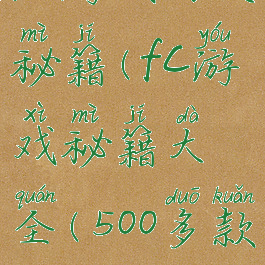 mì jí yóu
秘籍(fc游
xì mì jí dà
戏秘籍大
quán duō kuǎn
全(500多款